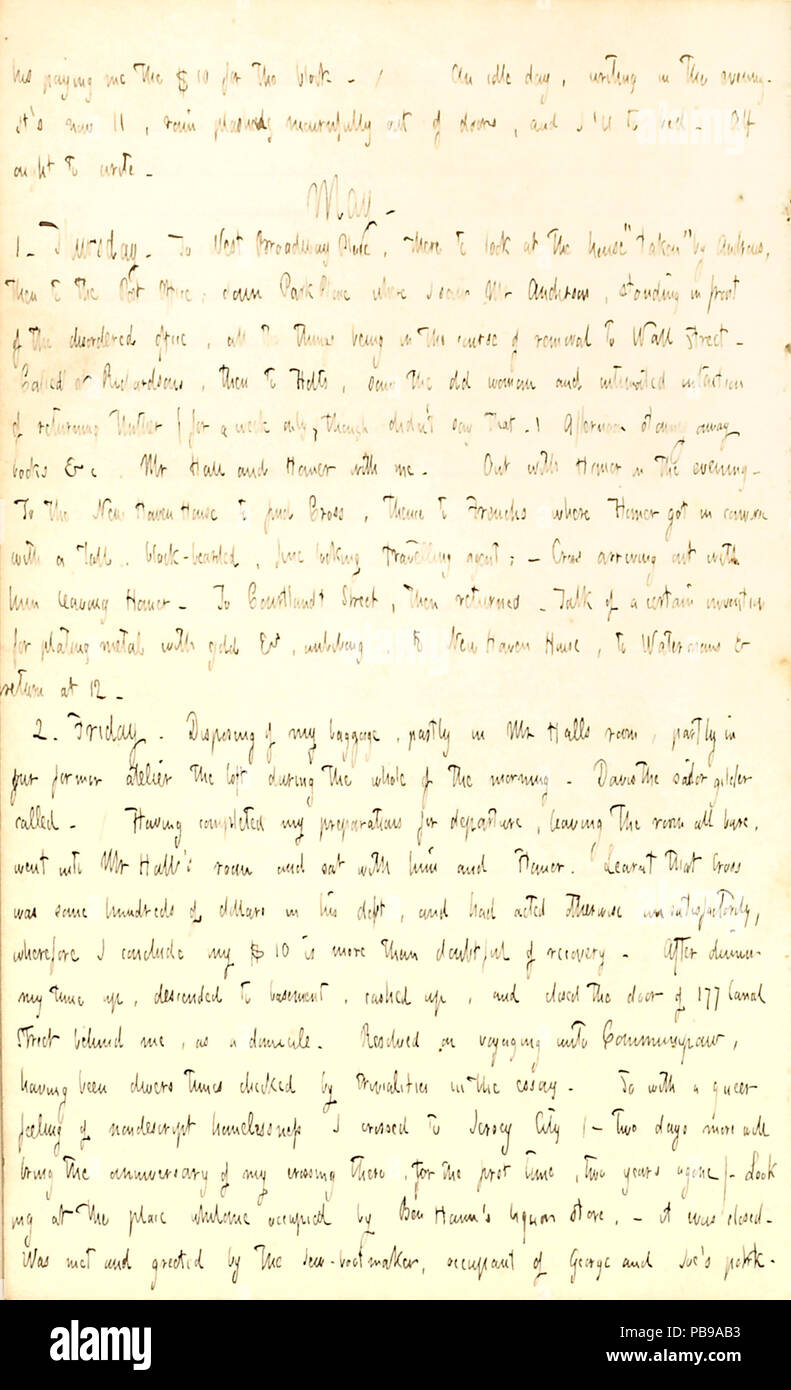 his paying me the $10 for the block - / An idle day, writing in the evening.
It's now 11, rain plashing mournfully out of doors, and I'll to bed - Alf
ought to write -
May -
1 - Thursday - To West Broadway Place, there to look at the house "taken" by Andrews,
then to the Post Office, down Park Place where I saw Mr Anderson, standing in front
of the disordered office, all the things being in the course of removal to Wall Street -
Called at Richardsons, then to Holts, saw the old woman and intimated intention
of returning thither / for a week only, though didn't say that - / Afternoon stowing away
books &c. Mr Hall and Homer with me - Out with Homer in the evening -
To the New Haven House to find Cross, thence to Frenchs where Homer got in converse
with a tall, black-bearded, fine looking travelling agent; - Cross arriving out with
him leaving Homer - To Courtlandt Street, then returned - Talk of a certain invention
for plating metal with gold &c, imbibing. To New Haven House, to Watermans &
return at 12 -
2 - Friday - Disposing of my baggage, partly in Mr Halls room, partly in
our former atelier the loft during the whole of the morning - Davis the sailor gilder
called - / Having completed my preparations for departure, leaving the room all bare,
went into Mr Hall's room and sat with him and Homer. Learnt that Cross
was some hundreds of dollars in his debt, and had acted otherwise unsatisfactorily,
wherefore I conclude my $10 is more than doubtful of recovery - After dinner
my time up, descended to basement, cashed up, and closed the door of 177 Canal
Street behind me, as a domicile. Resolved on voyaging unto Communipaw,
having been divers times checked by trivialities in the essay - So with a queer
feeling of nondescript homelessness I crossed to Jersey City / - two days more will
bring the anniversary of my crossing there, for the first time, two years agone / - Look
ing at the place whilome occupied by Ben Hann's liquor store, - it was closed -
Was met and greeted by the Jew-bootmaker, occupant of George and Joe's
alamy
Image ID: PB9AB3
www.alamy.com